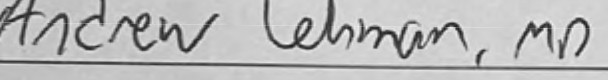 Andrew Lehman, MD